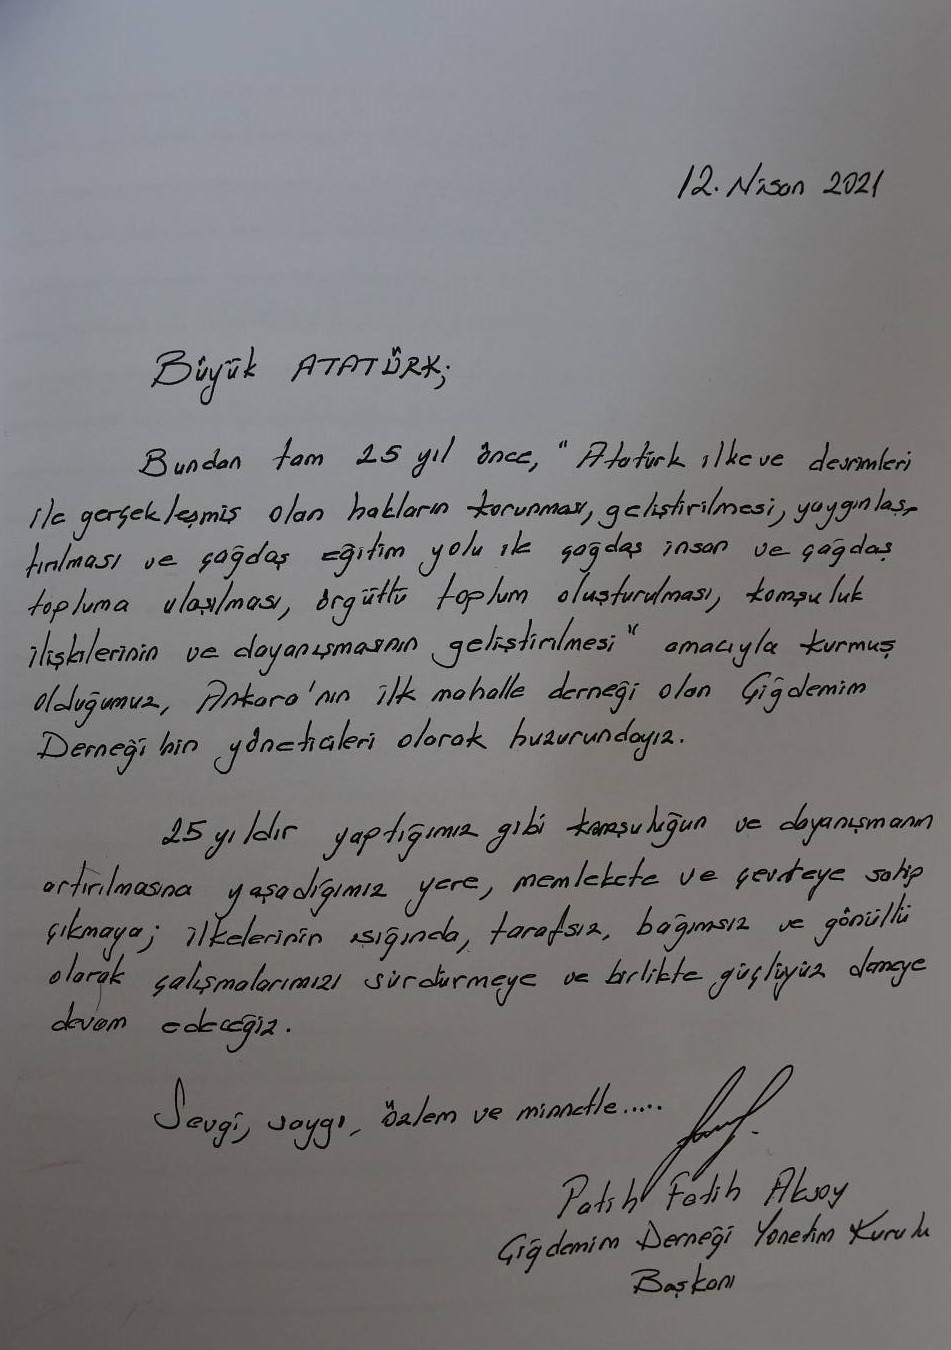 12. Nisan 2021
Büyük ATATÜRK;
Bundan tam 25 yıl önce, "Atatürk ilke ve devrimleri
ile gerçekleşmiş olan hakların korunması, geliştirilmesi, yaygınlaş-
tırılması ve çağdaş eğitim yolu ile çağdaş insan ve çağdaş
topluma ulaşılması, örgütlü toplum oluşturulması, komşuluk
ilişkilerinin ve dayanışmasının geliştirilmesi" amacıyla kurmuş
olduğumuz, Ankara'nın ilk mahalle derneği olan Çiğdemim
Derneği'nin yöneticileri olarak huzurundayız.
25 yıldır yaptığımız gibi komşuluğun ve dayanışmanın
artırılmasına yaşadığımız yere, memlekete ve çevreye sahip
çıkmaya; ilkelerinin ışığında, tarafsız, bağımsız ve gönüllü
olarak çalışmalarımızı sürdürmeye ve birlikte güçlüyüz demeye
devam edeceğiz.
Sevgi, saygı, özlem ve minnetle.....
Fatih Fatih Aksoy
Çiğdemim Derneği Yönetim Kurulu
Başkanı